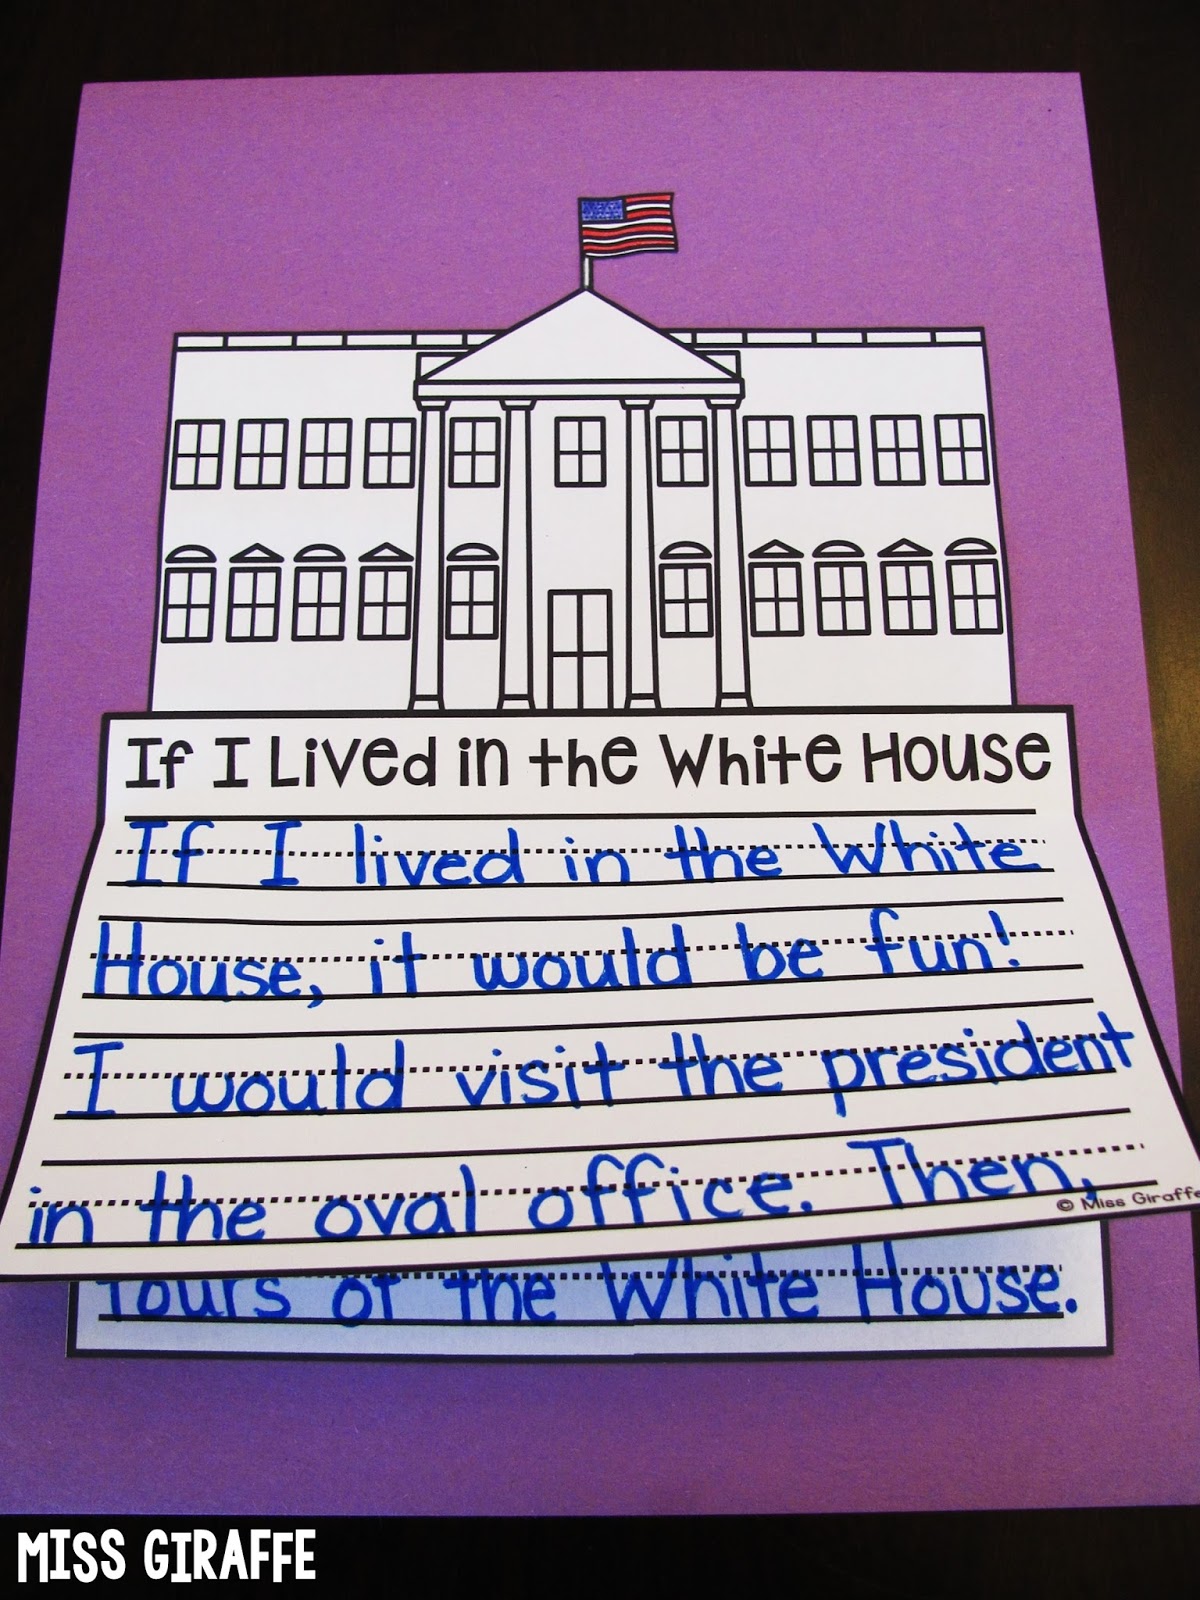 If I Lived in the White House
If I lived in the White
House, it would be fun!
I would visit the president
in the oval office. Then,
© Miss Giraffe
tours of the White House.
MISS GIRAFFE